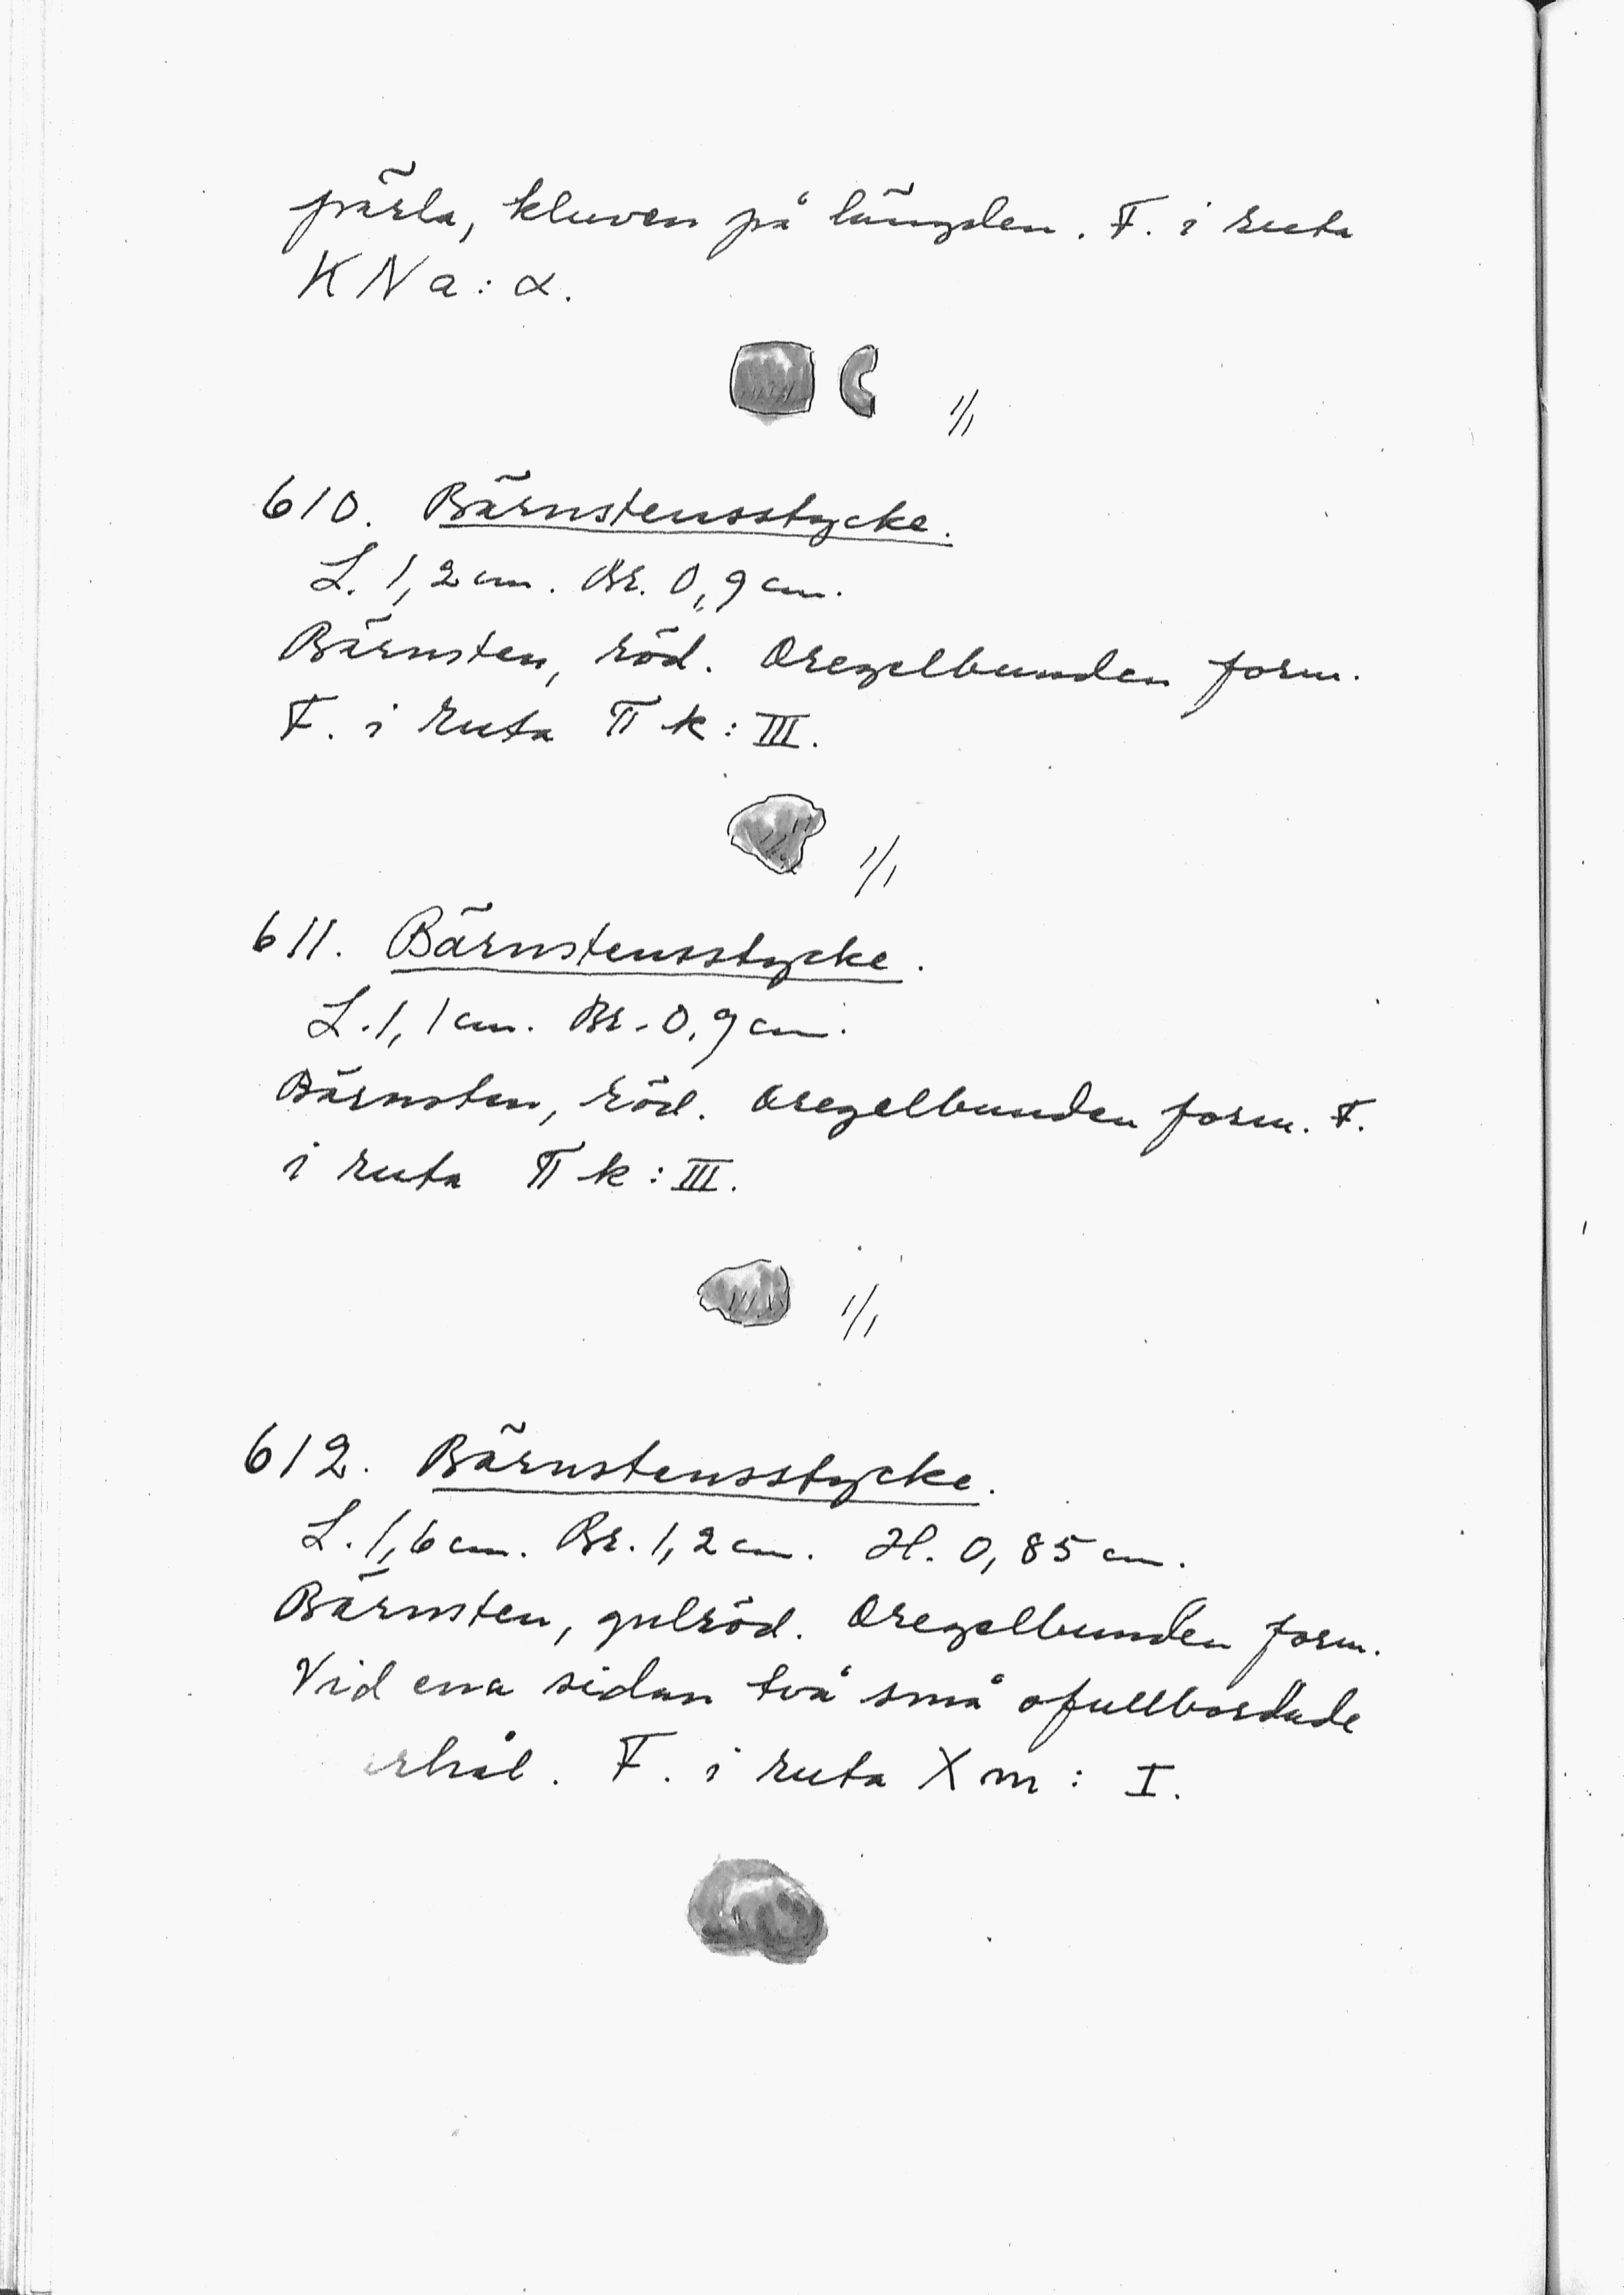 pärla, kluven på längden. F. i ruta
KNa: α.
1/1
610. Bärnstensstycke.
L. 1,2 cm. Br. 0,9 cm.
Bärnsten, röd. Oregelbunden form.
F. i ruta Π k: III.
1/1
611. Bärnstensstycke.
L. 1,1 cm. Br. 0,9 cm.
Bärnsten, röd. Oregelbunden form. F.
i ruta Π k: III.
1/1
612. Bärnstensstycke.
L. 1,6 cm. Br. 1,2 cm. H. 0,85 cm.
Bärnsten, gulröd. Oregelbunden form.
Vid ena sidan två små ofullbordade
F. i ruta X m: I.